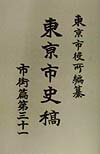 東京市役所編纂
東京市史稿
市街篇第三十一